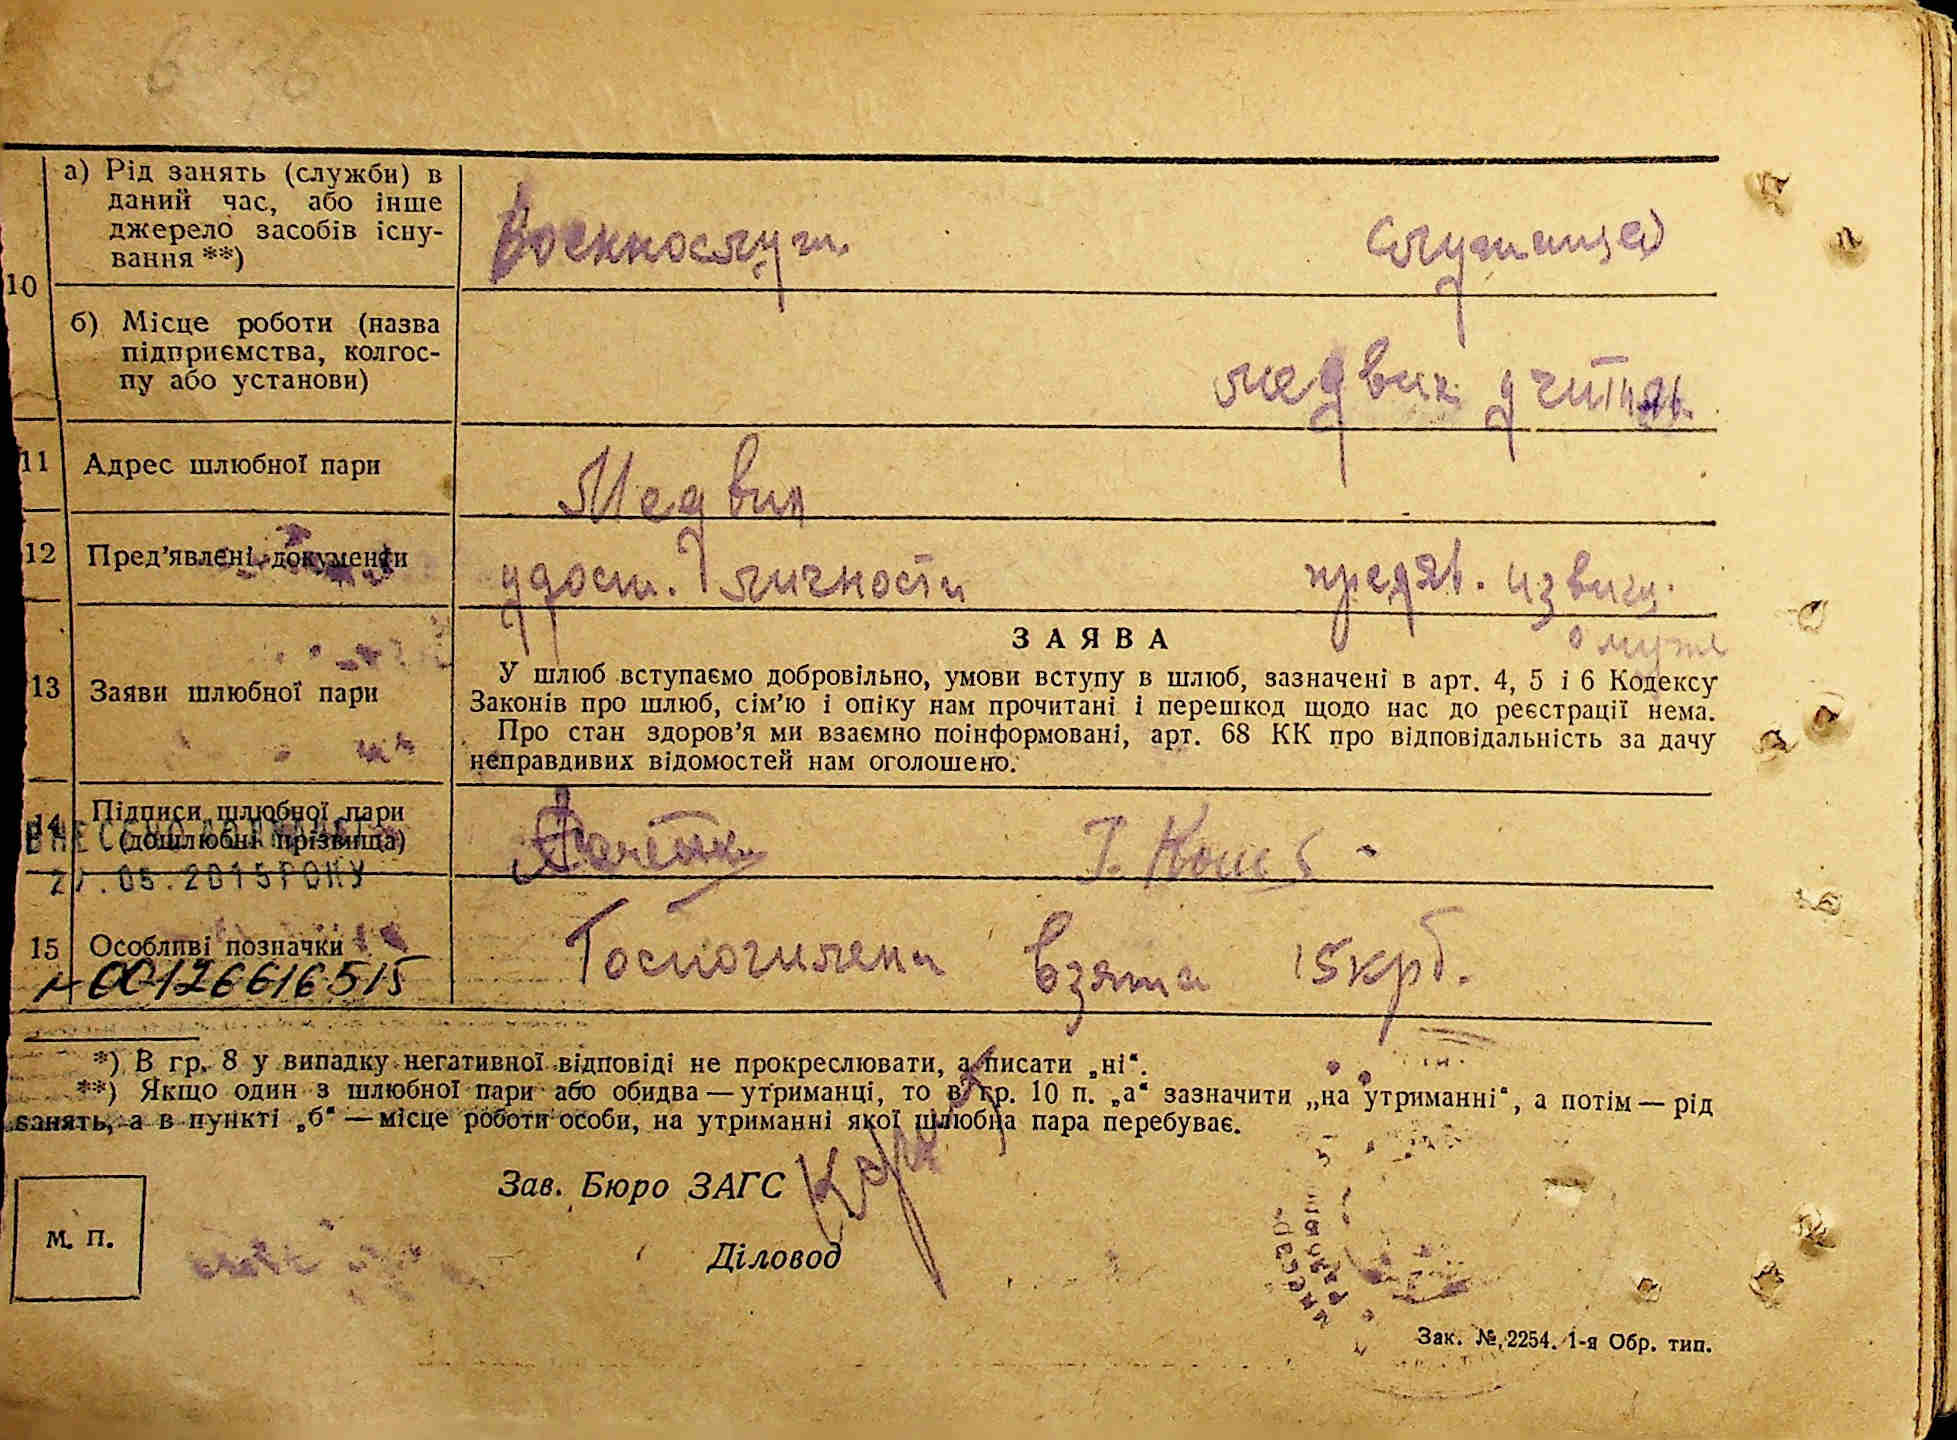 10
а) Рід занять (служби) в
даний час, або інше
джерело засобів існу-
вання **)
Военнослуж. служащая
б) Місце роботи (назва
підприємства, колгос-
пу або установи)
медвин учитель
11 Адрес шлюбної пари Медвин
12 Пред’явлені документи удост. личности предяв. извещ.
о муже
ЗАЯВА
13 Заяви шлюбної пари
У шлюб вступаємо добровільно, умови вступу в шлюб, зазначені в арт. 4, 5 і 6 Кодексу
Законів про шлюб, сім’ю і опіку нам прочитані і перешкод щодо нас до реєстрації нема.
Про стан здоров’я ми взаємно поінформовані, арт. 68 КК про відповідальність за дачу
неправдивих відомостей нам оголошено.
14 Підписи шлюбної пари
(дошлюбні прізвища)
.05.2015РОКУ
15 Особливі позначки Госпогилена взята 15 крб.
00126616515
*) В гр. 8 у випадку негативної відповіді не прокреслювати, а писати „ні“.
**) Якщо один з шлюбної пари або обидва — утриманці, то в гр. 10 п. „а“ зазначити „на утриманні“, а потім — рід
занять, а в пункті „б“ — місце роботи особи, на утриманні якої шлюбна пара перебуває.
Зав. Бюро ЗАГС
М. П.
Діловод
Зак. №, 2254. 1-я Обр. тип.